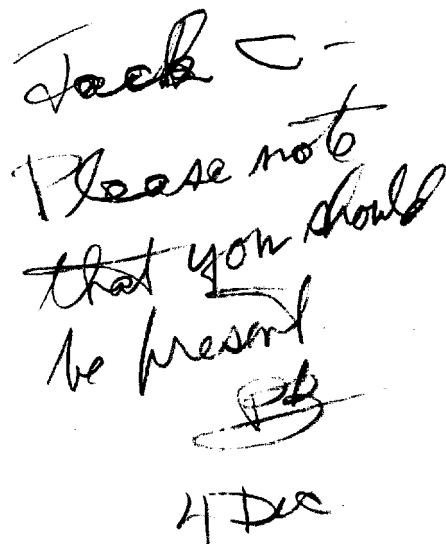 Jack C -
Please note
that you should
be present
PB
4 Dec